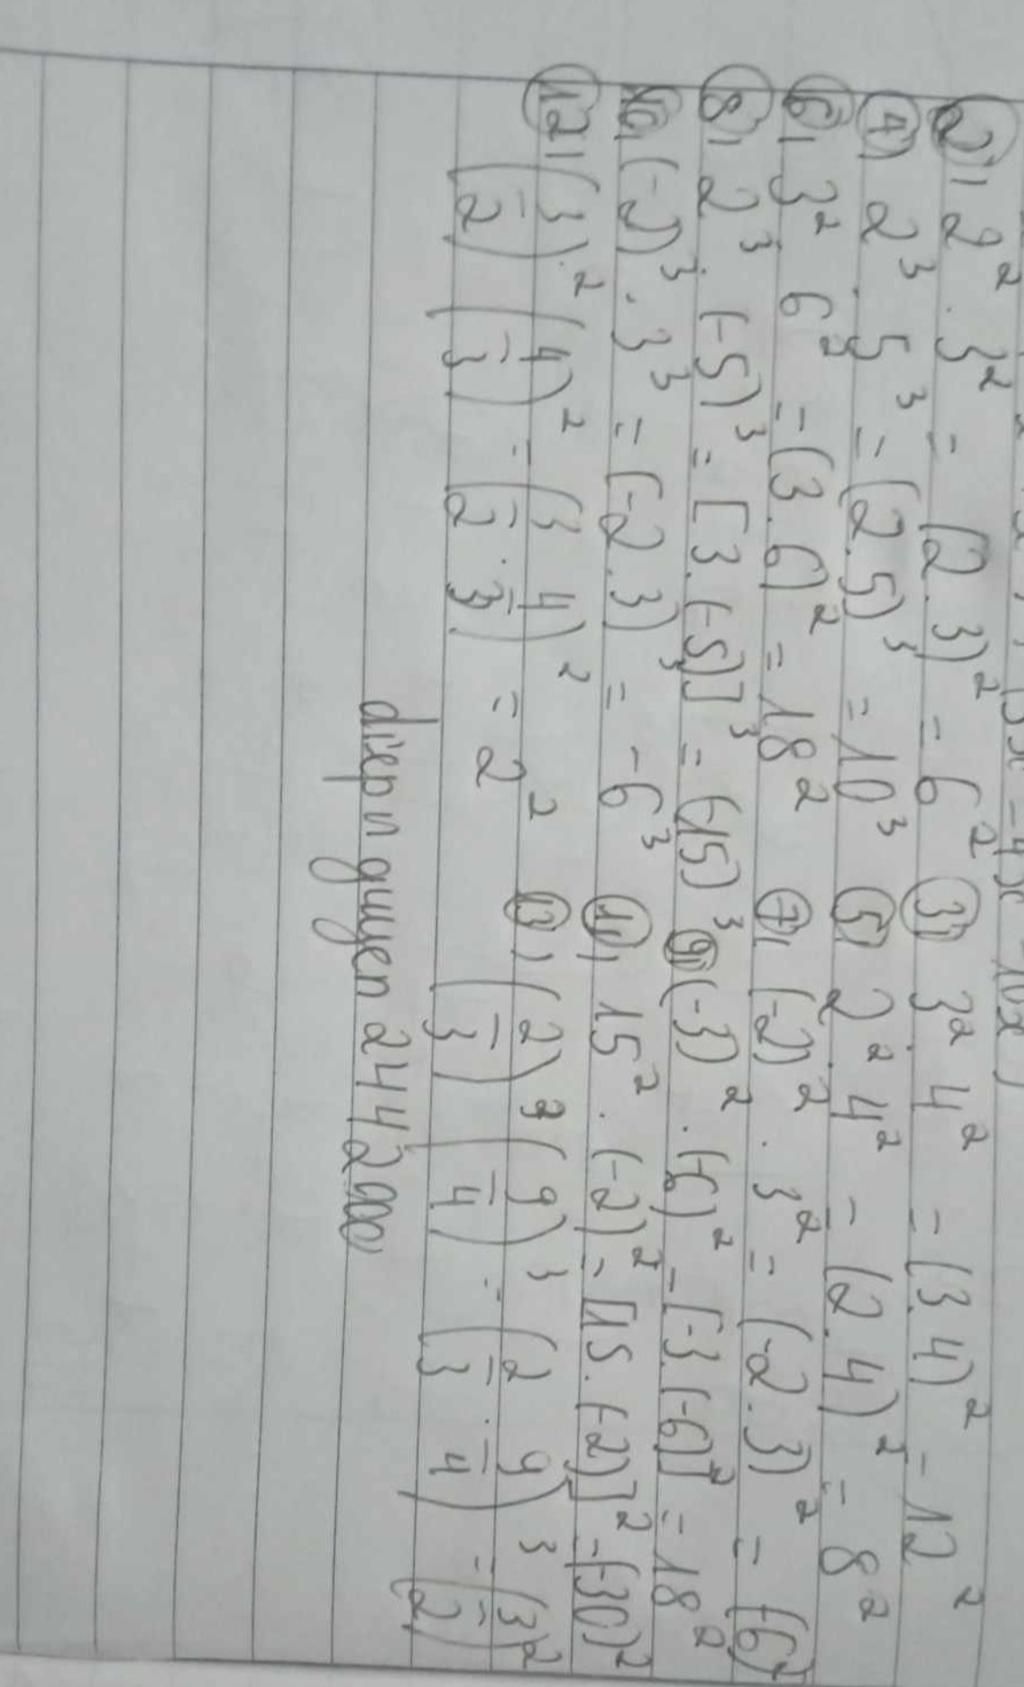 2) 2² . 3² = (2.3)² = 6² 3) 3² . 4² = (3.4)² = 12²
4) 2³ . 5³ = (2.5)³ = 10³ 5) 2² . 4² = (2.4)² = 8²
6) 3² . 6² = (3.6)² = 18² 7) (-2)² . 3² = (-2.3)² = (6)²
8) 2³ . (-5)³ = [3.(-5)]³ = (15)³ 9) (-3)² . (-6)² = [-3.(-6)]² = 18²
10) (-2)³ . 3³ = (-2.3)³ = -6³ 11) 15² . (-2)² = [15.(-2)]² = (-30)²
12) (3/2)² . (4/3)² = (3/2 . 4/3)² = 2² 13) (2/3)³ (9/4)³ = (2/3 . 9/4)³ = (3/2)²
diepnguyen2442000